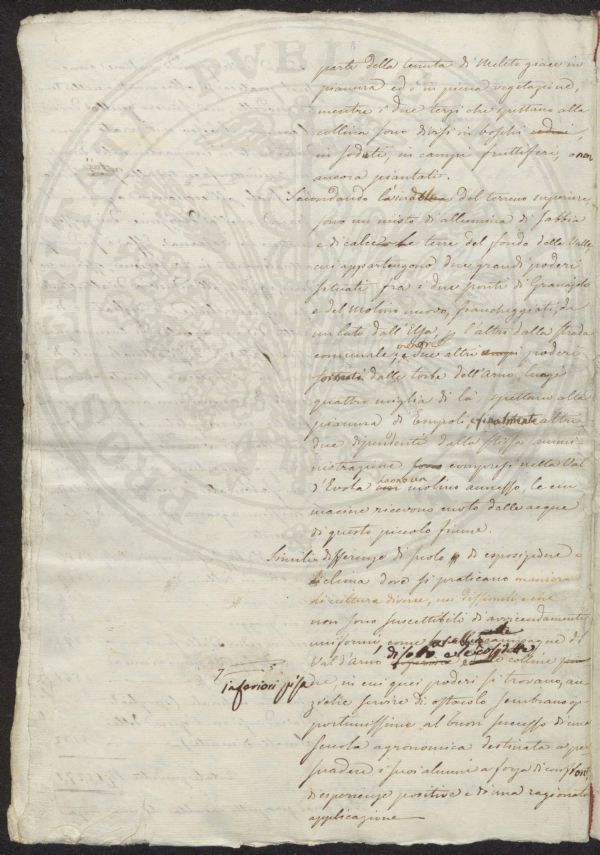 parte della tenuta di Meleto giace in
pianura ed è in piena vegetazione,
mentre i due terzi che spettano alla
collina sono divisi in boschi
in sodeti, in campi fruttiferi, o non
ancora piantati.
Secondando la del terreno superiore,
sono un misto di allumina di sabbia
e di calce. Le terre del fondo della Valle
cui appartengono due grandi poderi
situati fra i due ponti di Granajolo
e del Molino nuovo, fiancheggiati da
un lato dall'Elsa, e l'altro dalla strada
comunale; e due altri poderi
dalle torbe dell'Arno lungi
quattro miglia di là spettano alla
pianura di Empoli, e finalmente altri
due dipendenti dalla stessa ammi
nistrazione sono compresi nella Val
d'Evola con molino annesso, le cui
macine ricevono moto dalle acque
di questo piccolo fiume.
Simili differenze di suolo di esposizione e
di clima dove si praticano maniere
di cultura diverse,
non sono suscettibili di avvicendamenti
uniformi, come campagne di
Val d'Arno di sotto e le così dette colline
inferiori pisa
ne, in cui quei poderi si trovano, an
ziché servire di ostacolo sembrano op
portunissime al buon successo di una
scuola agronomica destinata a per
suadere i suoi alunni a forza di confronti
di esperienze positive e di una ragionata
applicazione